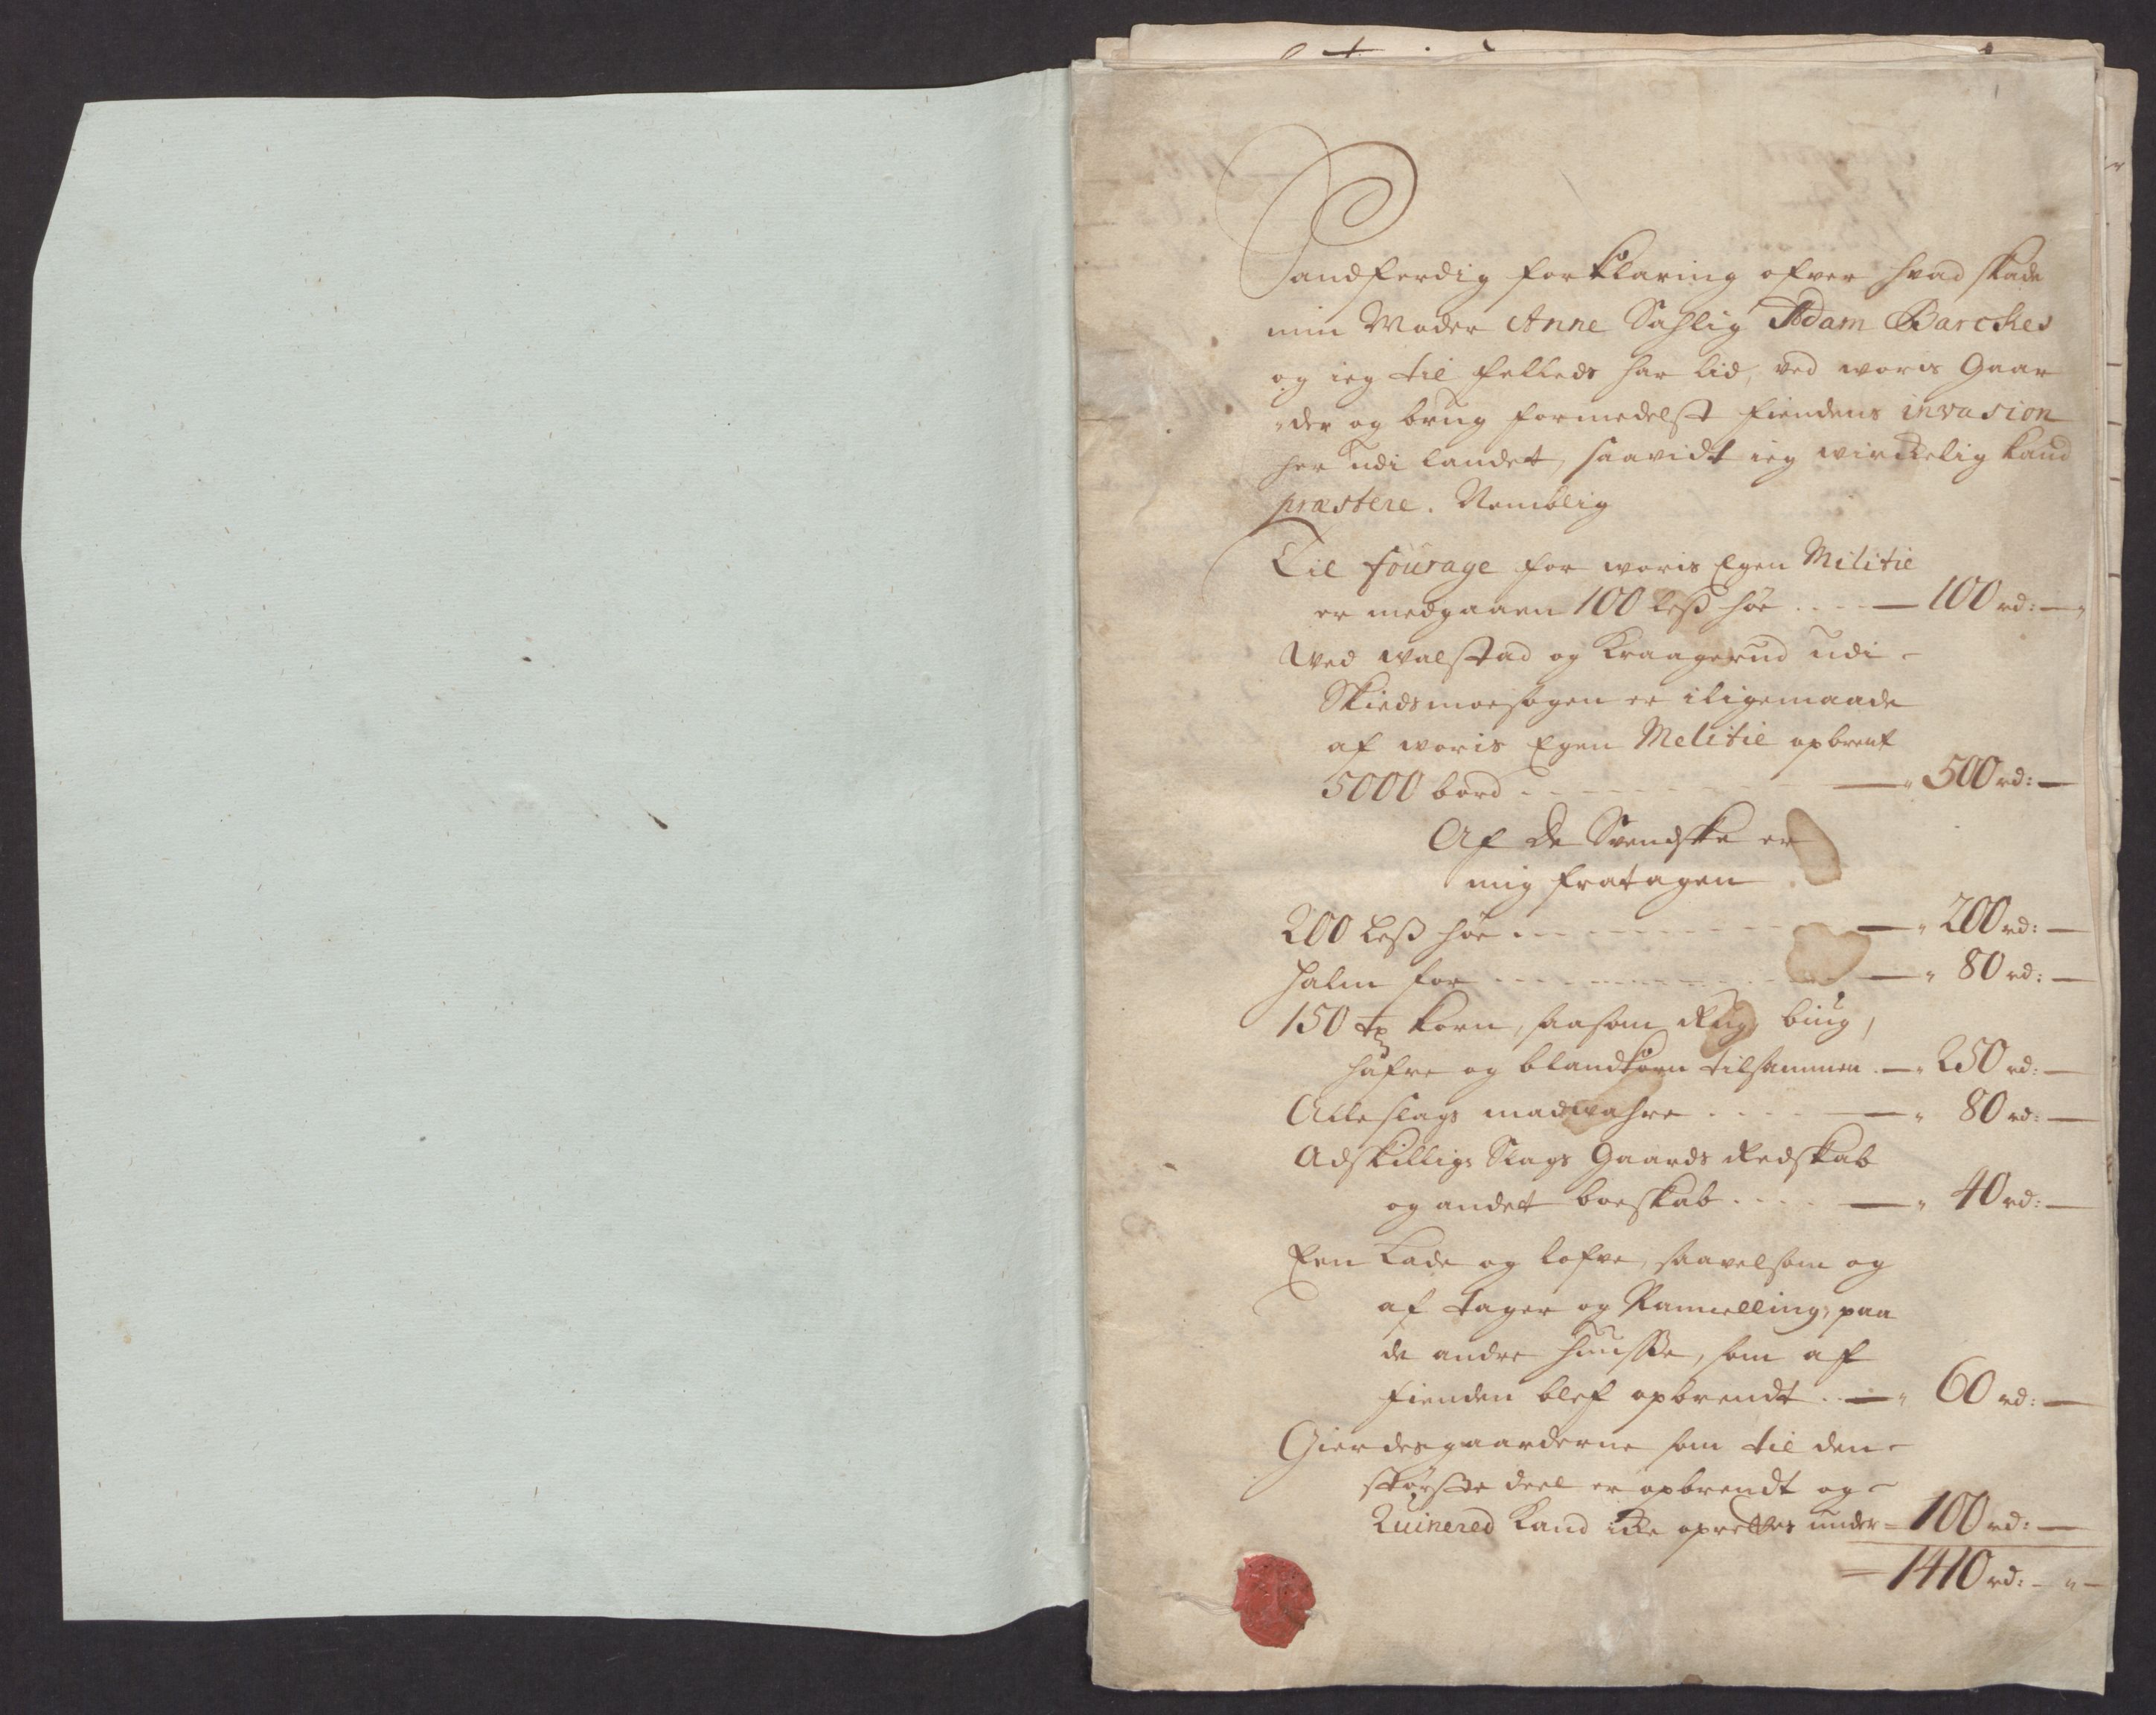 Sandferdig forklaring ofver hvad skade
min Moder Anne Sahlig Adam Barckes
og ieg til felleds har lid, ved woris Gaar
-der og brug formedelst fiendens invasion
her udi landet, saavidt ieg wirckelig kand
præstere. Nemblig
Til fourage for woris Egen Militie
er medgaaen 100 leß høe - - - 100 rd: -
Wed walstad og Kraagerud udi
Skiedsmoesogen er iligemaade
af woris Egen Melitie opbrent
5000 bord - - - 500 rd: -
Af de Svendske er
mig fratagen
200 Leß høe - - - 200 rd: -
halm for - - - 80 rd: -
150 tr korn, saasom Rug, biug,
hafre og blandkorn tilsammen - 250 rd: -
Alle slags madwahre - - - 80 rd: -
Adskillige Slags Gaards Redskab
og andet boeskab - - - 40 rd: -
Een Lade og lofve, saavelsom og
af tager og paa
de andre huusße, som af
fienden blef opbrendt - - 60 rd: -
Gierdesgaarderne som til den
største deel er opbrendt og
Ruinered kand icke oprettes under - 100 rd: -
1410 rd: - " -